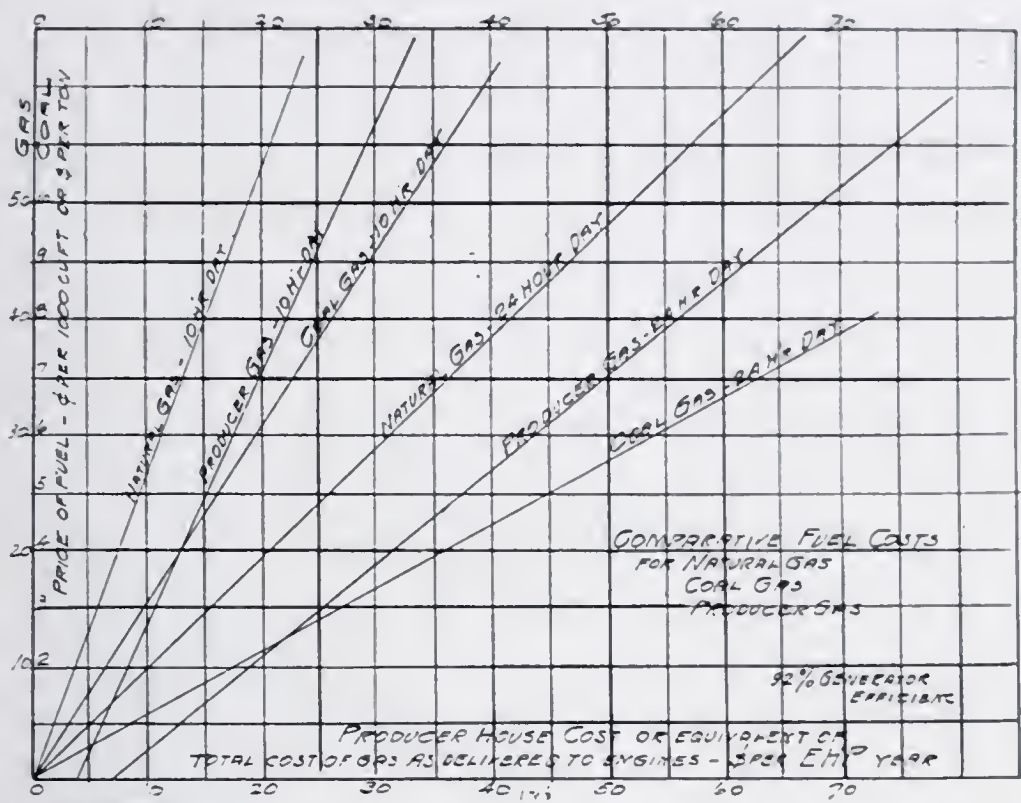 0 10 20 30 40 50 60 70
GAS
COAL
PRICE OF FUEL - ¢ PER 1000 CU FT OR $ PER TON
50
9
40 8
7
30 6
5
20 4
3
10 2
0
NATURAL GAS - 10 HR DAY
PRODUCER GAS - 10 Hr DAY
COAL GAS - 10 HR DAY
NATURAL GAS - 24 HOUR DAY
PRODUCER GAS - 24 HR DAY
COAL GAS - 24 Hr DAY
COMPARATIVE FUEL COSTS
FOR NATURAL GAS
COAL GAS
PRODUCER GAS
92% GENERATOR
PRODUCER HOUSE COST OR EQUIVALENT OR
TOTAL COST OF GAS AS DELIVERED TO ENGINES - $ PER EHP YEAR
0 10 20 30 40 50 60 70